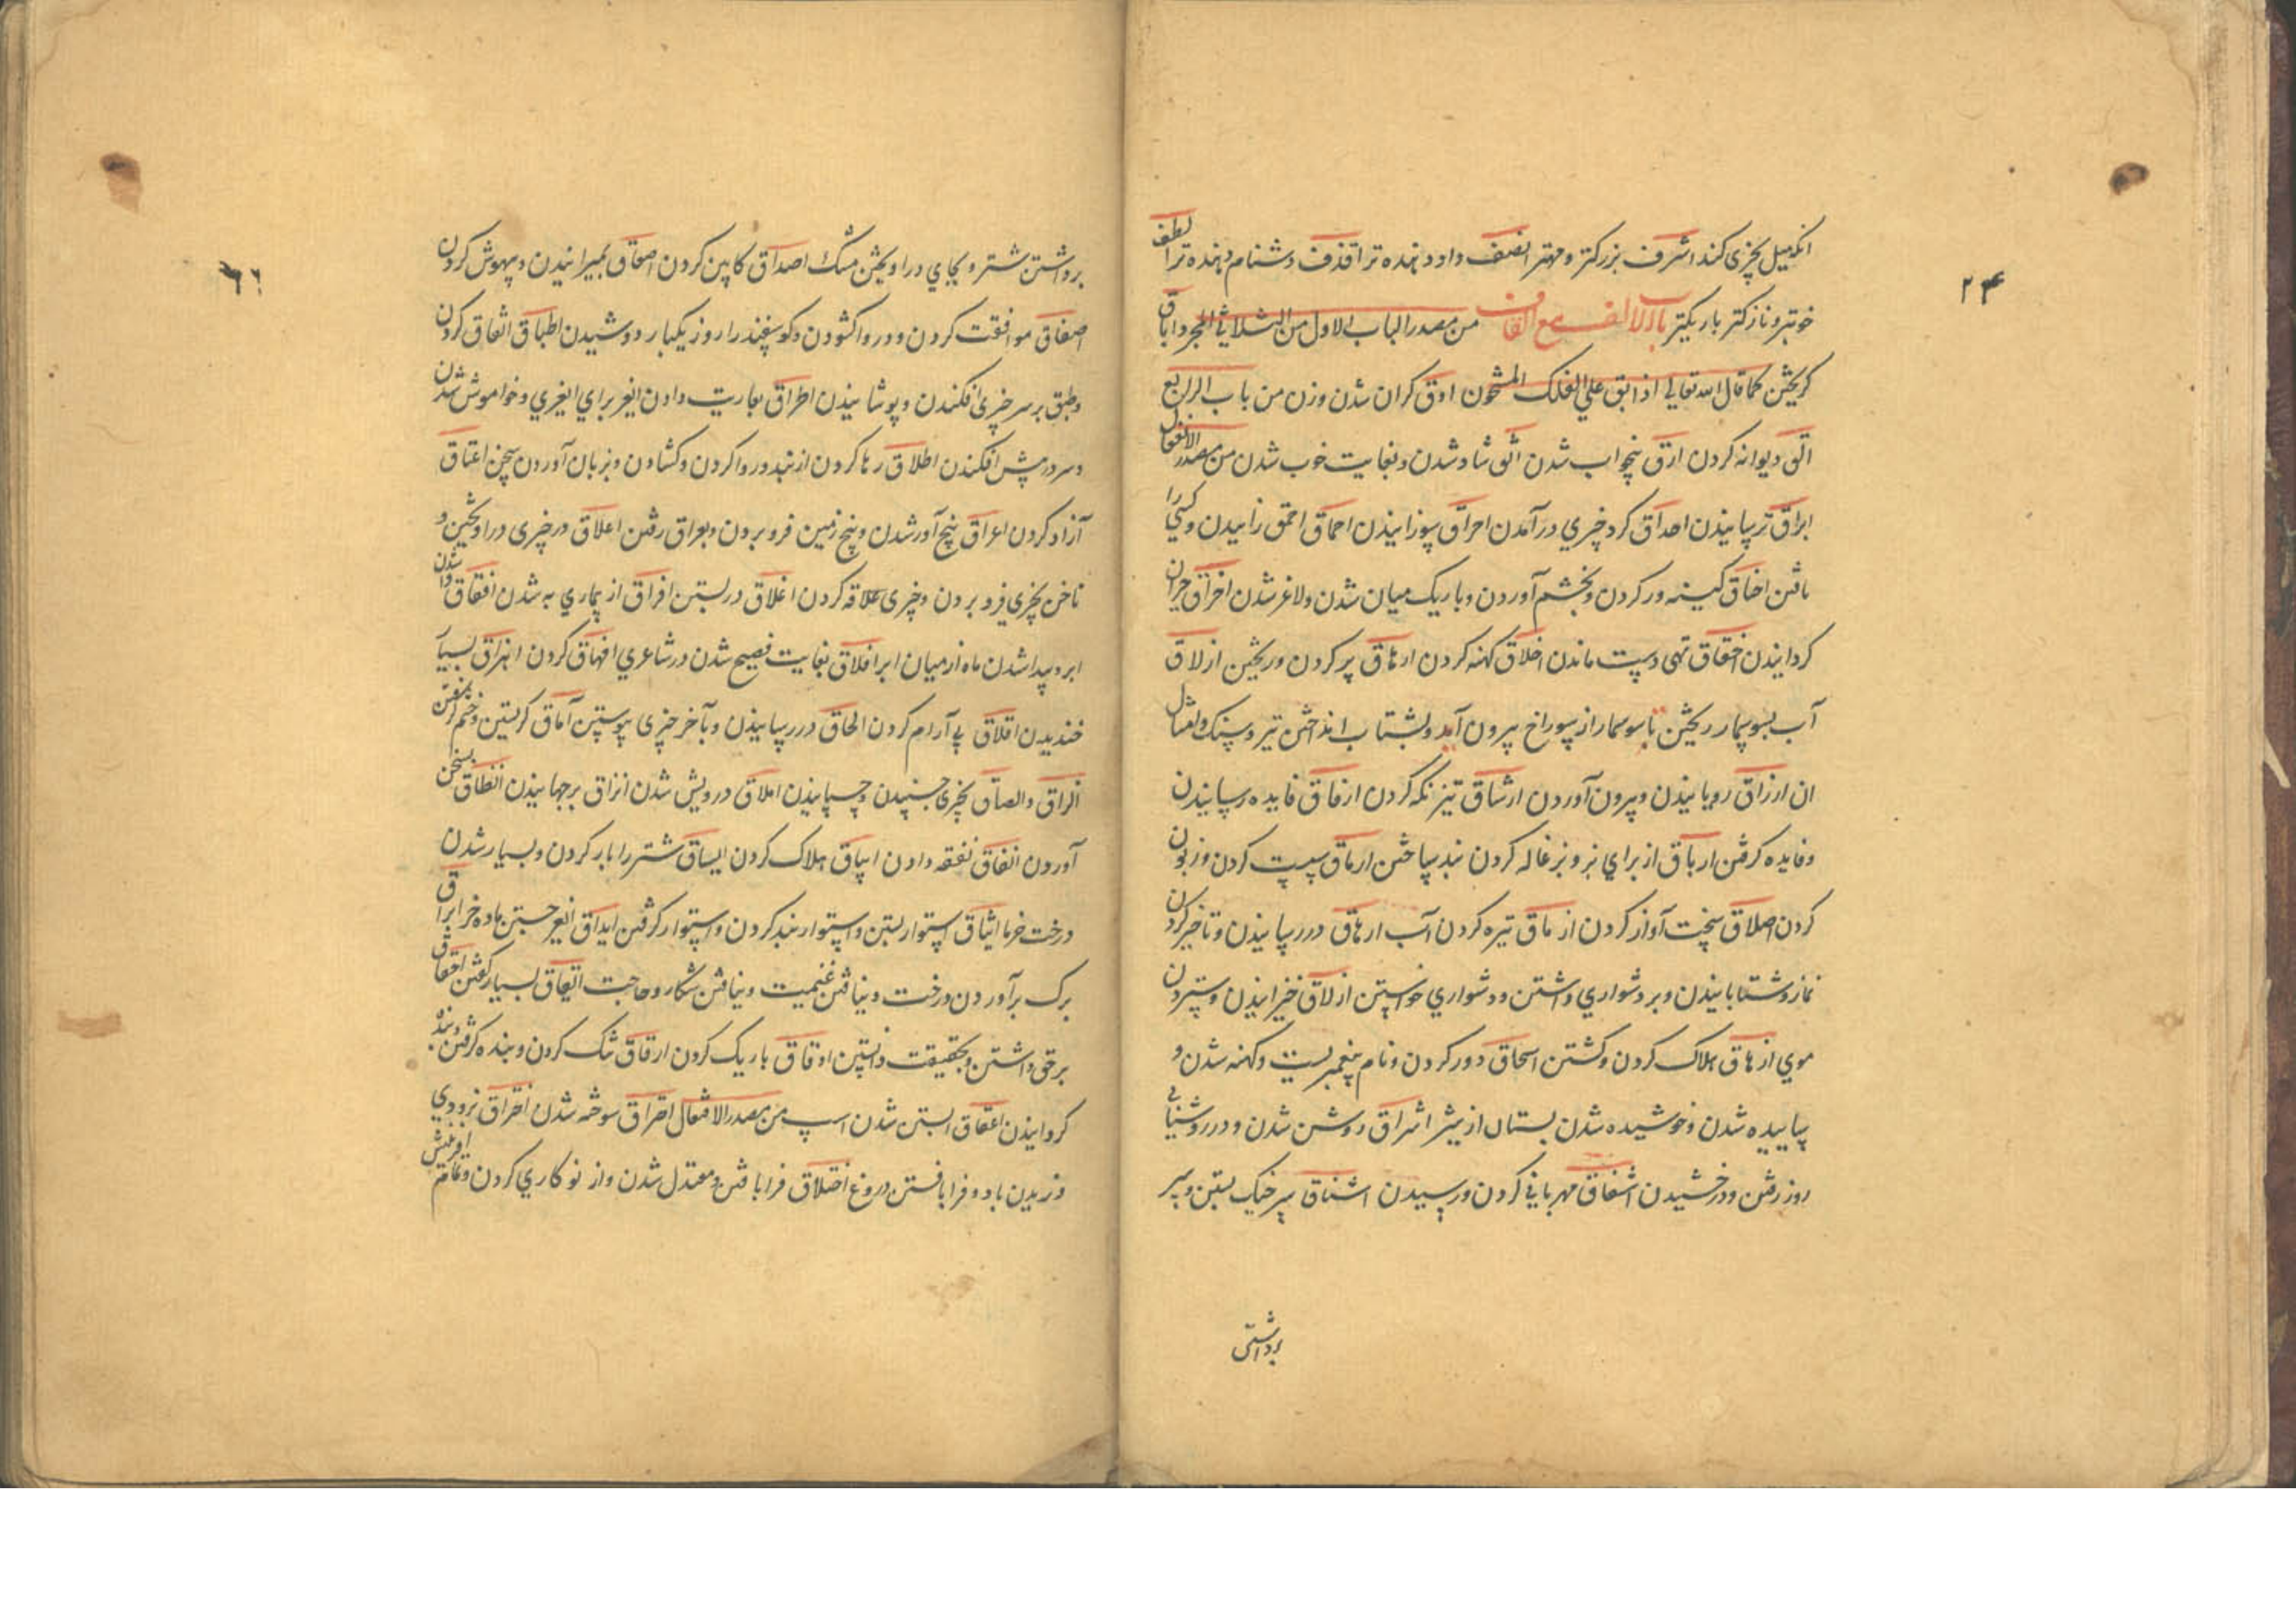 ۲۴
انکه میل بچیزی کند اشرف بزرکتر و مهتر انصف داد دهنده تر اقذف دشنام دهنده تر الطف
خوبتر و نازکتر باریکتر باب الالف مع القاف من مصدر الباب الاول من الثلاثی المجرد اباق
کریختن کما قال الله تعالی اذ ابق علی الفلک المشحون اوق کران شدن وزن من باب الرابع
الق دیوانه کردن ارق بیخواب شدن انق شاد شدن و بغایت خوب شدن من مصدر الافعال
ابراق ترسانیدن احداق کرد چیزی درآمدن احراق سوزانیدن احماق احمق زاییدن و کسی را
یافتن احناق کینه ور کردن و بخشم آوردن و باریک میان شدن و لاغر شدن اخراق حیران
کردانیدن اخفاق تهی دست ماندن اخلاق کهنه کردن ارهاق پر کردن و ریختن ازلاق
آب بسوسمار ریختن تا سوسمار از سوراخ بیرون آمد و بشتاب انداختن تیر و سنک و امثال
ان ارزاق رویانیدن و بیرون آوردن ارشاق تیز نکه کردن ارفاق فایده رسانیدن
و فایده کرفتن ارباق از برای بز و بزغاله کردن بند ساختن ارماق سست کردن و زبون
کردن اصلاق سخت آواز کردن ازماق تیره کردن آب ارهاق در رسانیدن و تاخیر کردن
نماز و شتابانیدن و بر دشواری داشتن و دشواری خواستن ازلاق خیزانیدن و ستردن
موی ازهاق هلاک کردن و کشتن اسحاق دور کردن و نام پیغمبریست و کهنه شدن و
ساییده شدن و خوشیده شدن پستان از شیر اشراق روشن شدن و در روشنیایی
روز رفتن و درخشیدن اشفاق مهربانی کردن و ترسیدن اشناق سر خیک بستن و سر
برداشتن
۶۶
برداشتن شتر و بجای در اویختن مشک اصداق کابین کردن اصعاق بمیرانیدن و بیهوش کردن
اصفاق موافقت کردن و در واکشودن و کوسفند را روز یکبار دوشیدن اطباق اتفاق کردن
و طبق بر سر چیزی افکندن و پوشانیدن اطراق بعاریت دادن ایغر برای ایغری و خواموش شدن
و سر در پیش افکندن اطلاق رها کردن از بند و روا کردن و کشادن و بزبان آوردن سخن اعتاق
آزاد کردن اعراق بیخ آور شدن و بیخ زمین فرو بردن و بعراق رفتن اعلاق در چیزی در اویختن و
ناخن بچیزی فرو بردن و چیزی علاقه کردن اغلاق در بستن افراق از بیماری به شدن افتاق وا شدن
ابر و پیدا شدن ماه از میان ابر افلاق بغایت فصیح شدن در شاعری افهاق کردن اهزاق بسیار
خندیدن اقلاق بی آرام کردن الحاق در رسانیدن و بآخر چیزی پیوستن آماق کریستن و خشم کرفتن
الزاق والصاق بچیزی چسپیدن و چسپانیدن املاق درویش شدن انزاق برجهانیدن انطاق بسخن
آوردن انفاق نفقه دادن ایباق هلاک کردن ایساق شتر را بار کردن و بسیار شدن
درخت خرما ایثاق استوار بستن و استوار بند کردن و استوار کرفتن ایداق ایغر جستن ماده خر ایراق
برک برآوردن درخت و نیافتن غنیمت و نیافتن شکار و حاجت ایعاق بسیار کفتن احقاق
بر حق داشتن و بحقیقت دانستن ادقاق باریک کردن ارقاق تنک کردن و بنده کرفتن و بنده
کردانیدن اعقاق ابستن شدن اسپ من مصدر الافتعال احتراق سوخته شدن اختراق بزودی
وزیدن باد و فرا بافتن دروغ اختلاق فرا بافتن و معتدل شدن و از نو کاری کردن و تمام افرینش